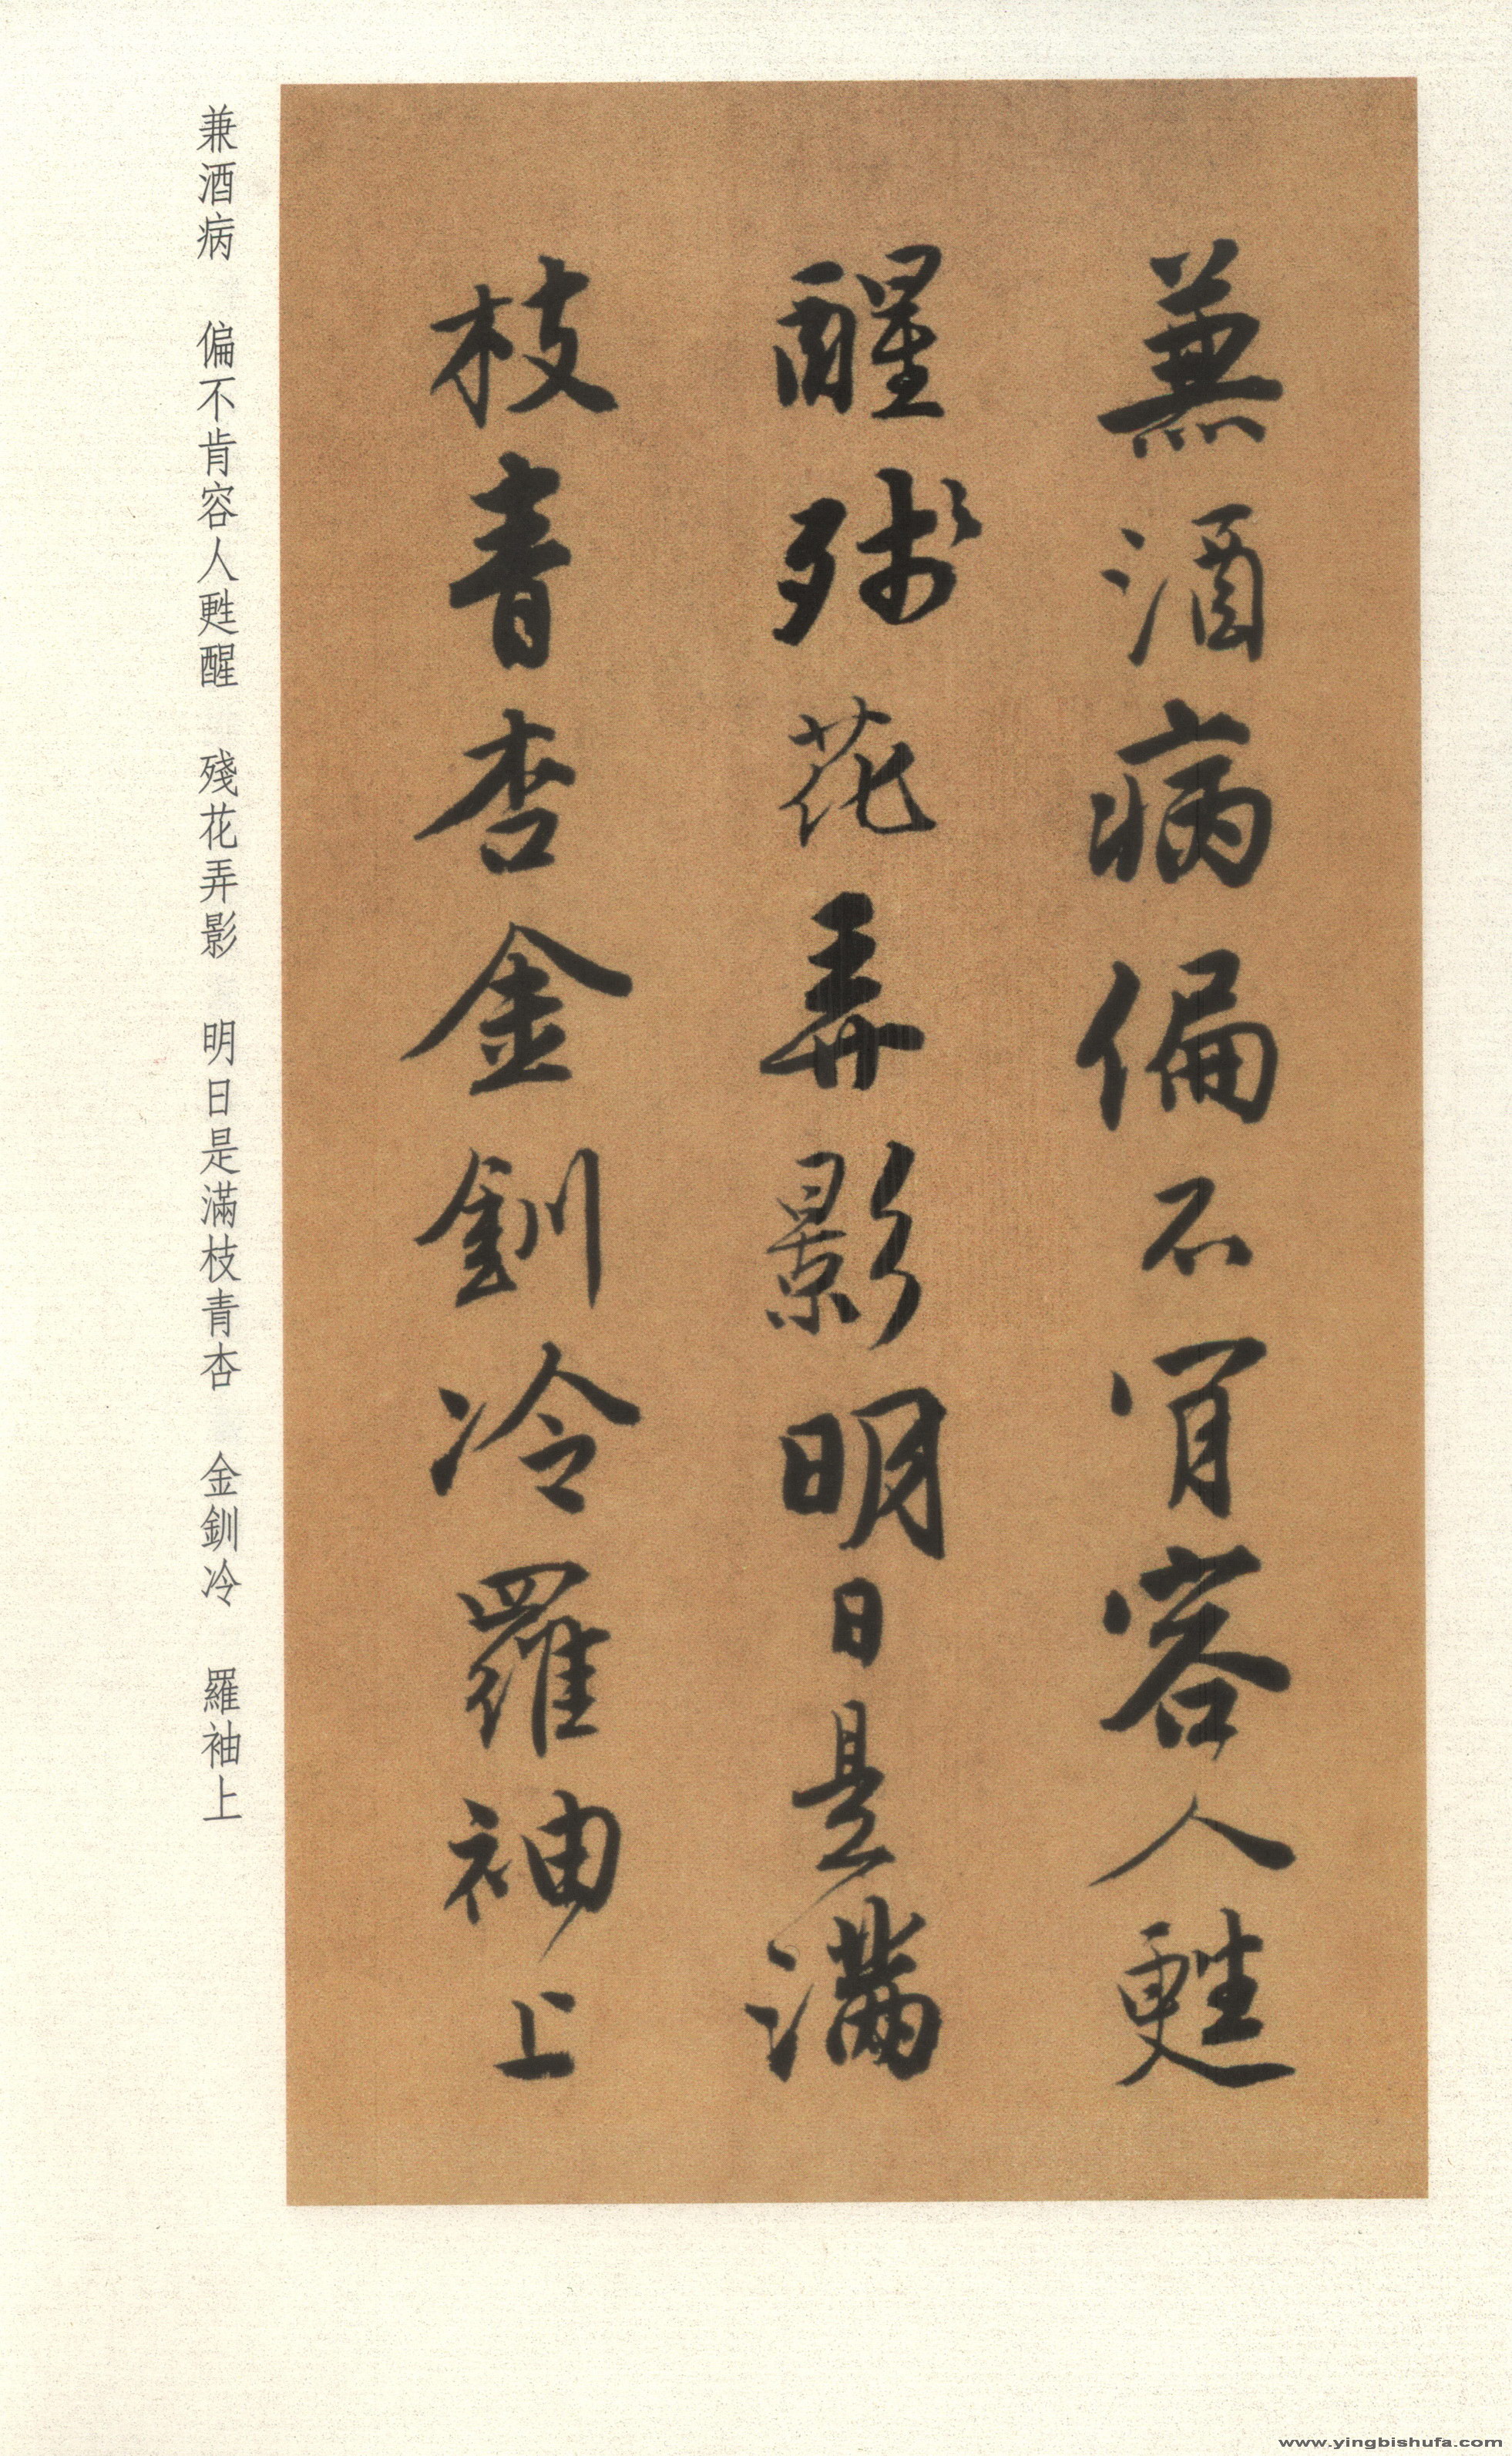 兼酒病偏不肯容人甦
醒殘花弄影明日是滿
枝青杏金釧冷羅袖上
兼酒病　偏不肯容人甦醒　殘花弄影　明日是滿枝青杏　金釧冷　羅袖上
www.yingbishufa.com